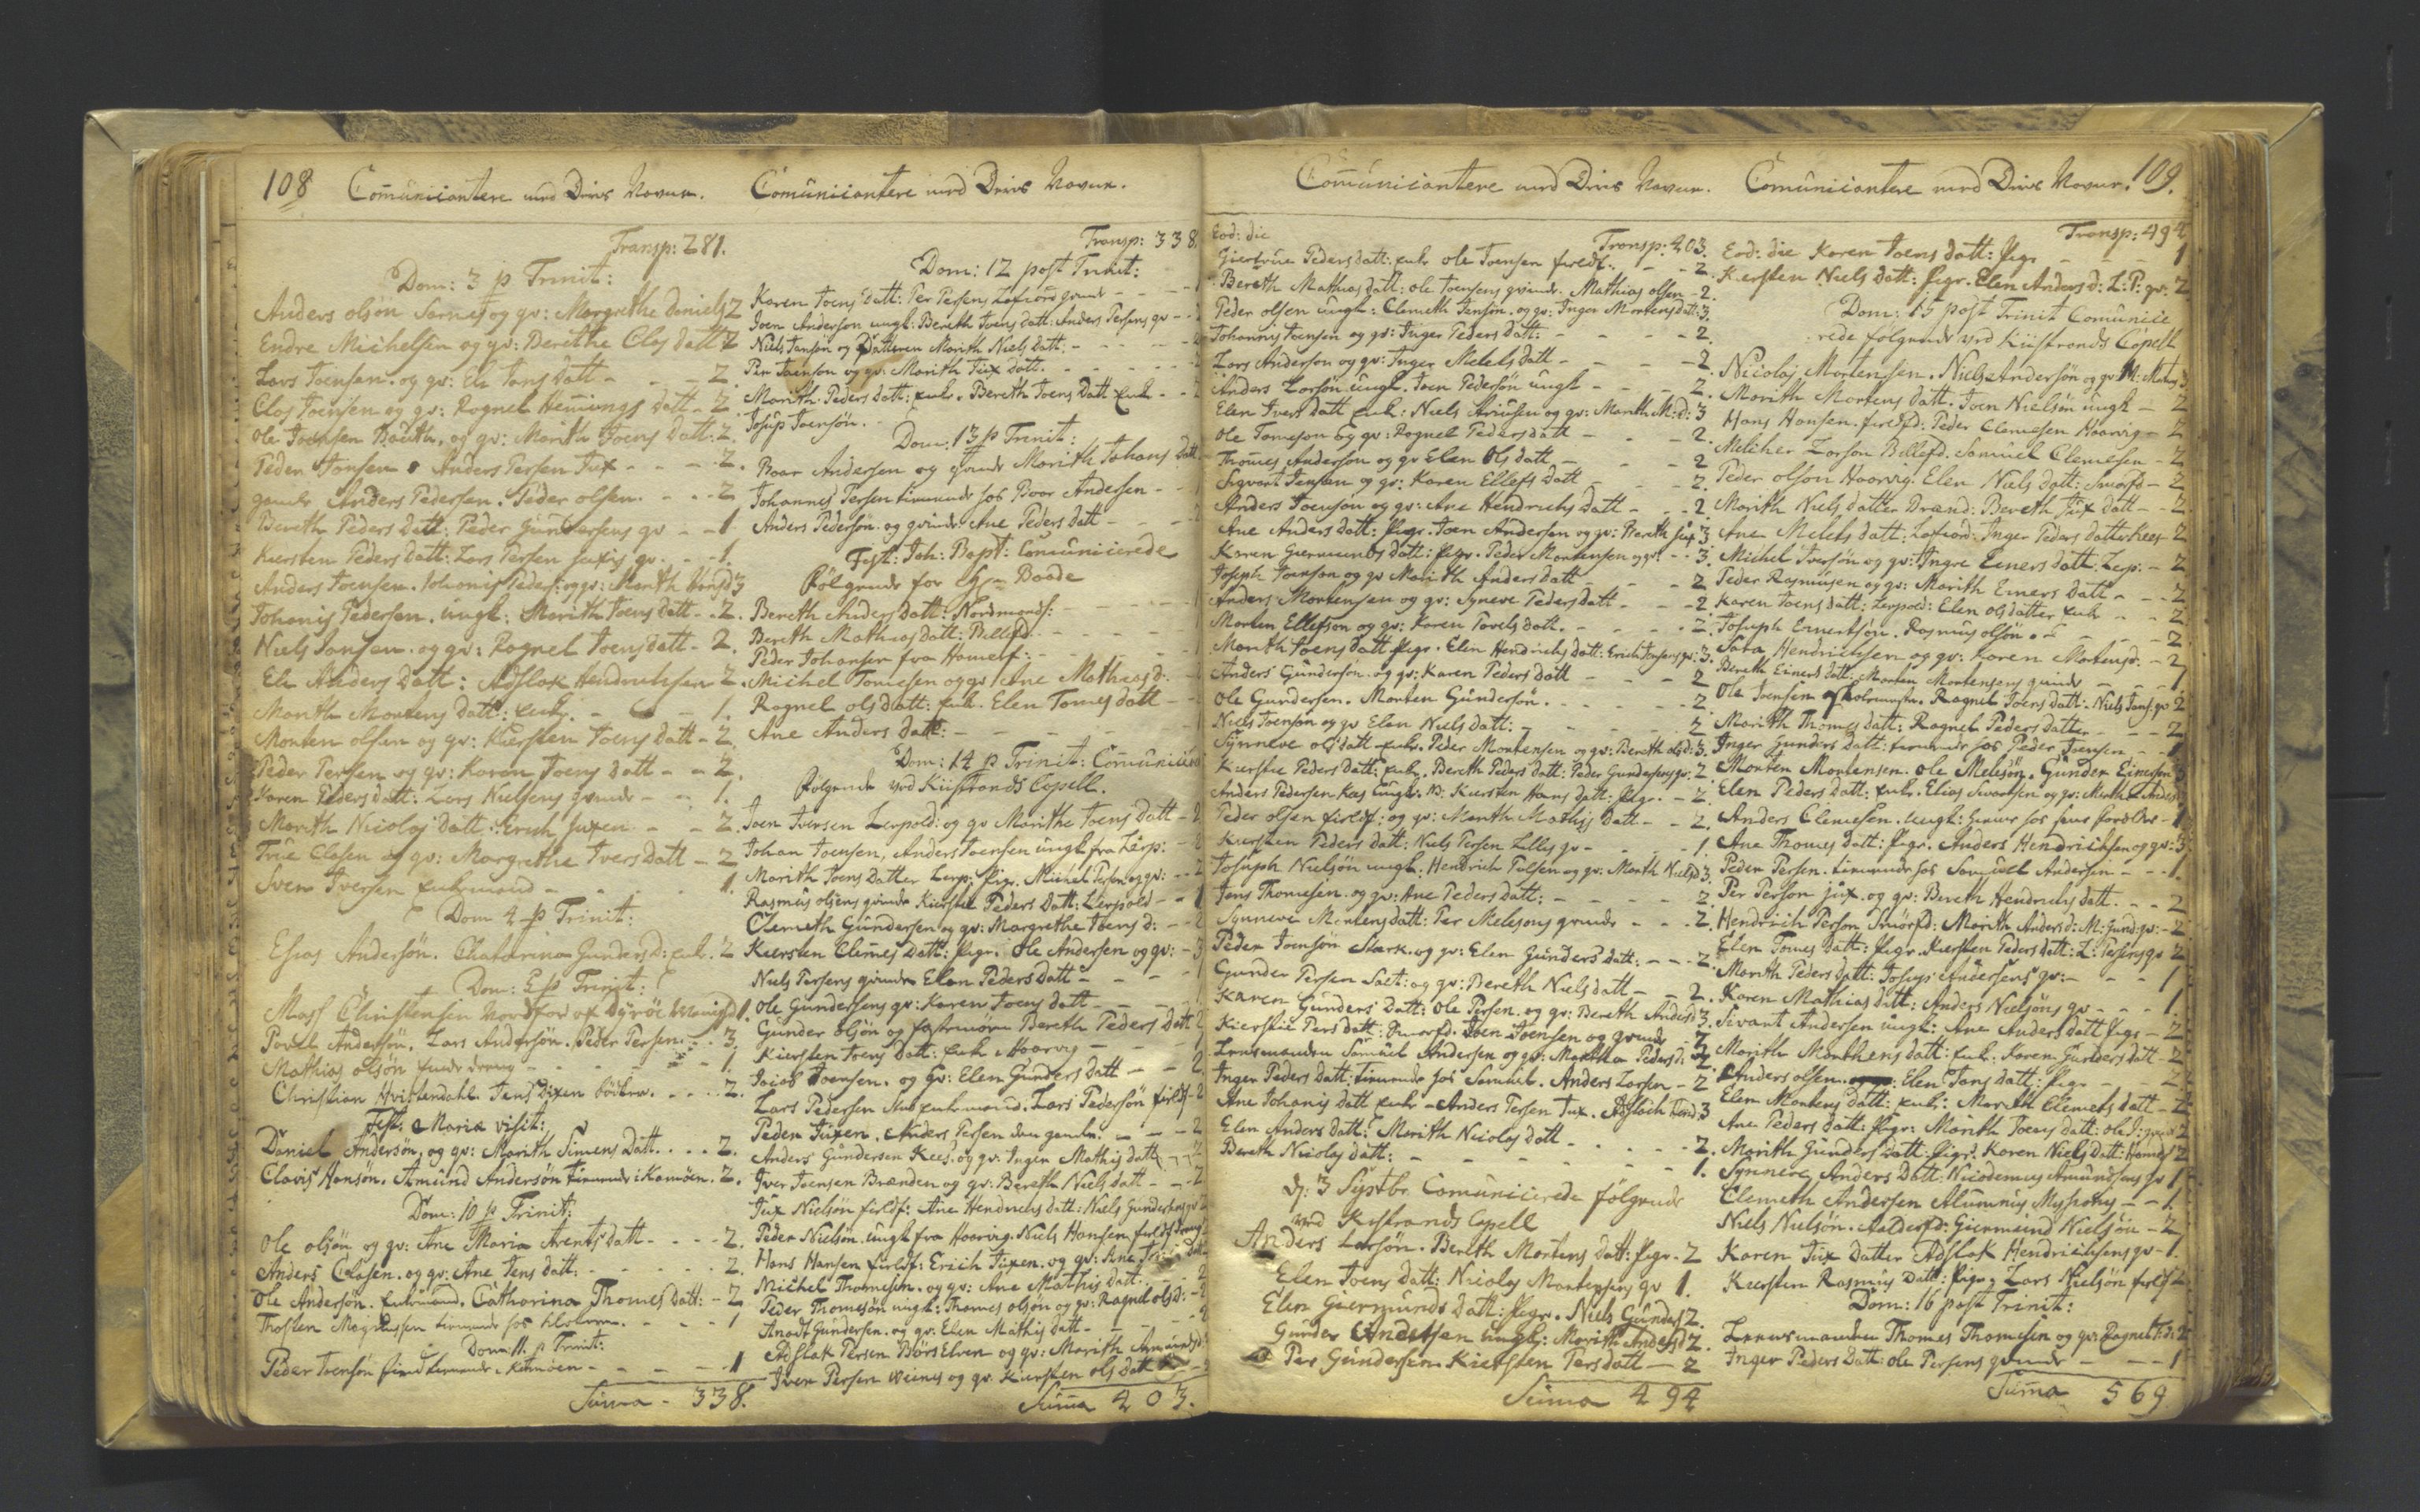 108 Comunicantere med Deris Navne.
Transp: 281.
Dom: 3 p Trinit:
Anders olsön Sarnes og qv: Margrethe Daniels 2
Endre Michelsen og qv: Berethe Clas datt 2
Lars Joensen. og qv: Eli Jans datt - - - 2.
Clas Joensen og qv: Ragnel Hemings datt - 2
ole Joensen og qv: Marith Joens datt: 2.
Peder Jonsen Anders Persen Jux - - - 2.
gamle Anders Pedersen. Peder olsen. - - - 2
Bereth Peders datt: Peder Gundersens qv - - 1
Kiersten Peders datt: Lars Persen qv. - - 1.
Anders Joensen. Johanis Peders: og qv: Marith 3
Johanis Pedersen. ungk: Marith Joens datt - - 2.
Niels Jansen. og qv: Ragnel Joens datt - 2.
Eli Anders datt: Adslak Hendrichsen 2.
Marith Mortens datt: enk. - - - 1.
Morten olsen og qv: Kiersten Joens datt - 2.
Peder Persen og qv: Karen Joens datt - - 2.
Karen Peders datt: Lars Nielsens qvinde - - 1.
Marith Nicolaj datt: Erich Juxen - - 2.
True Clasen og qv: Margrethe Ivers datt - 2
Sven Iversen enkemand - - - 1.
Dom 4 p Trinit:
Esias Andersön. Chatarina Gunders d: enk. 2
Dom: 5 p Trinit:
Mass Christensen Nordfar af Dyröe 1.
Povel Andersön. Lars Andersön. Peder Persen - - 3.
Mathias olsön dreng - - - 1
Christian Hvistendahl. Jens Dixen bödker. - - - 2.
Fest: Mariæ visit:
Daniel Andersön. og qv: Marith Simens datt. - - - 2.
Clavis Hansön. Amund Andersön tienende i Kamöen. 2.
Dom: 10 p Trinit:
ole olsön og qv: Ane Maria Arents datt - - - 2.
Anders Clasen. og qv: Ane Jens datt: - - - 2.
ole Andersön. Enkemand. Catharina Thomes datt: - 2
Thosten Magnussen tienende hos klokeren. - - - 1
Dom: 11. p Trinit:
Peder Joensön tienende i Kamöen - - - 1
Suma - 338.
Comunicantere med Deris Navne.
Transp: 338.
Dom: 12 post Trinit:
Karen Joens datt: Per Persens Lafiord qvinde - - 1
Joen Anderson ungk: Bereth Joens datt: Anders Persens qv - -
Niels Jansen og Datteren Marith Niels datt. - - -
Per Joenson og qv: Marith Jux datt. - - -
Marith Peders datt: enk. Bereth Joens Datt enk - -
Josup Joensön.
Dom: 13 p Trinit:
Boar Andersen og qvinde Marith Johans datt
Johannes Persen tienende hos Boar Andersen - -
Anders Pedersön og qvinde Ane Peders datt - -
Fest: Joh: Bapt: Comunicerede
fölgende for Baade
Bereth Anders datt: Nordmands: - - -
Bereth Mathias datt: Billefd. - - -
Peder Johansen fra Hamerf: - - -
Michel Tomesen og qv Ane Mathias d: -
Ragnel ols datt: enk. Elen Tomes datt -
Ane Anders datt: - - -
Dom: 14 p Trinit: Comunicere
fölgende ved Kiistrands Capell.
Joen Iversen Lerpold: og qv Marithe Joens datt - 2
Johan Joensen, Anders Joensen ungk fra Lerp: - 2
Marith Joens datter Lerp: pige. Michel Persen og qv: -
Rasmus olsens qvinde Kierstie Peders datt: Lerpold - - 1
Clemeth Gundersen og qv: Margrethe Joens d: - - 2
Kiersten Clemes datt: pige. Ole Andersen og qv: - 3
Niels Persens qvinde Elen Peders datt - - 1
ole Gundersens qv: Karen Joens datt - - -
Gunder olsön og fæstemöen Bereth Peders datt 2
Kiersten Joens datt: enk i Haarvig - - - 1
Jacob Joensen. og qv: Elen Gunders datt - - 2
Lars Pedersen Stub enkemand. Lars Pedersön fieldf - 2
Peder Juxen. Anders Persen den gamle. - - - 2
Anders Gundersen Kees. og qv: Inger Mathis datt - - 2
Iver Joensen Brænden og qv: Bereth Niels datt - - 2
Jux Nielsön fieldf: Ane Hendrichs datt: Niels Gundersens qv 2
Peder Nielsen ungk fra Haarvig. Niels Hansen fieldf dreng
Hans Hansen fieldf: Erich Juxen. og qv: Ane
Michel Thomesen. og qv: Ane Mathis datt. - - -
Peder Thomesön ungk: Thomes olsen og qv: Ragnel ols d: -
Anadt Gundersen. og qv: Elen Mathis datt - - -
Adslak Persen Börs Elven og qv: Marith Amunds
Iver Persen og qv Kiersten ols datt
Suma 403.
Comunicantere med Deris Navne.
Eod: die Transp: 403.
Giertrue Peders datt: enk ole Joensen fieldf: - - - 2.
Bereth Mathias datt: ole Joensens qvinde. Mathias olsen - 2.
Peder olsen ungk: Clemeth Jensön. og qv: Inger Mortens datt: 3.
Johannes Joensen og qv: Inger Peders datt: - - - 2.
Lars Anderson og qv: Inger Melchs datt - - - 2.
Anders Larsön ungk. Joen Pedersön ungk - - - 2.
Elen Ivers datt enk: Niels Ariusen og qv: Marith M: d: 3
ole Tomeson og qv: Ragnel Peders datt - - - 2.
Thomes Anderson og qv Elen Ols datt - - - 2
Sigvart Jensen og qv: Karen Ellefs datt - - - 2.
Anders Joensön og qv: Ane Hendrichs datt - - 2
Ane Anders datt: pige. Joen Andersen og qv: Bereth Jux 3
Karen Giermunds datt: pige. Peder Mortensen og qv: - - 3.
Joseph Joenson og qv Marith Anders datt - - - 2
Anders Mortensen og qv: Syneve Peders datt - - - 2.
Morten Ellefson og qv: Karen Povels datt. - - - 2.
Marith Joens datt pige. Elen Hendrichs datt: Erich Joensens qv: 3.
Anders Gundersön. og qv: Karen Peders datt - - - 2
Ole Gundersen. Morten Gundersön. - - - 2.
Niels Joenson og qv Elen Niels datt: - - - 2
Synneve ols datt enk. Peder Mortensen og qv: Bereth ols d: 3.
Kierstie Peders datt: enk. Bereth Peders datt: Peder Gundersens qv: 2
Anders Pedersen Kees ungk. Kiersten Hans datt: pige. - - 2.
Peder olsen fieldf: og qv: Marith Mathis datt - - 2.
Kiersten Peders datt: Niels Persen Lilles qv - - - 1.
Josuph Nielsön ungk. Hendrich Polsen og qv: Marith Niels d 3.
Jens Thomesen. og qv: Ane Peders datt: - - - 2.
Synneve Mortens datt: Per Melesens qvinde - - - 2.
Peder Joensön Stark. og qv: Elen Gunders datt: - - - 2.
Gunder Persen Saet: og qv: Bereth Niels datt - - 2.
Karen Gunders datt: Ole Persen. og qv: Bereth Anders d 3.
Kierstie Pers datt: Smorfd. Joen Joensen og qvinde 3
Lensmanden Samuel Andersen og qv: Martha Peders d: 2.
Inger Peders datt: tienende hos Samuel. Anders Larsen - 2
Ane Johanis datt enk - Anders Persen Jux. Adslach Hend: 3
Elen Anders datt: Marith Nicolaj datt - - - 2.
Bereth Nicolaj datt: - - - 1.
d: 3 Septbr Comunicerede fölgende
ved Kistrands Capell
Anders Larsön. Bereth Mortens datt: pige - 2
Elen Joens datt: Nicolaj Mortensens qv 1.
Elen Giermunds datt: pige. Niels Gunders 2.
Gunder Andersen ungk: Marith Anders d 2.
Per Gundersen. Kiersten Pers datt - 2
Suma 494
Comunicantere med Deris Navne. 109.
Transp: 494
Eod: die Karen Joens datt: pige - - - 1
Kiersten Niels datt: pige. Elen Anders d: L: P: qv: 2
Dom: 15 post Trinit Comunice
rede fölgende ved Kiistrands Capell
Nicolaj Mortensen. Niels Andersön og qv: M: 3
Marith Mortens datt. Joen Nielsön ungk - 2
Hans Hansen. fieldfd: Peder Clemesen Haarvig - 2
Melcher Larson Billefd. Samuel Clemesen - 2
Peder olson Haarvig. Elen Niels datt: Smorfd - 2
Marith Niels datter Brænd: Bereth Jux datt - - 2
Ane Melchs datt: Lafiord: Inger Peders datter Kees 2
Michel Iversön og qv: Ingre Einers datt: Lerp: - 2
Peder Rasmusen og qv: Marith Einers datt - - - 2
Karen Joens datt: Lerpold: Elen ols datter enk - - 2
Josuph Ernertsön. Rasmus olsön. - - - 2
Sara Hendrichsen og qv: Karen Mortens d. - 2
Bereth Einers datt: Morten Mortensens qvinde - - 1
Ole Joensen Skolemester. Ragnel Joens datt: Niels Jans: qv 2
Marith Thomes datt: Ragnel Peders datter - - - 2
Inger Gunders datt: tienende hos Peder Joensen - - 1
Morten Mortensen. Ole Melesön. Gunder Einersen 3
Elen Peders datt: enk. Elias Sivartsen og qv: Marith Anders 3
Anders Clemesen. ungk: hiemme hos sine foreldre - 1
Ane Thomes datt: pige. Anders Hendrichsen og qv: 3
Peder Persen. tienende hos Samuel Andersen - - - 1.
Per Person Jux. og qv: Bereth Hendrichs datt. - - 2
Hendrich Person Smörfd: Marith Anders d: M: Gund: qv: - 2
Elen Tomes datt: pige. Kiersten Peders datt: L: Persens qv 2
Marith Peders datt: Josups Andersens qv: - - - 1
Karen Mathias datt: Anders Nielsöns qv - - - 1.
Sivart Andersen ungk: Ane Anders datt pige - 2
Marith Morthens datt: enk. Karen Gunders datt - 2
Anders olsen. Elen Jans datt: pige - - - 2.
Elen Mortens datt: enk: Marith Clemets datt - 2
Ane Peders datt: pige: Marith Joens datt: 2
Marith Gunders datt: pige. Karen Niels datt: 2
Synneve Anders Datt: Nicodemus Amundsens qv 1
Clemeth Andersen Alumnus - - 1.
Niels Nielsön. Giermund Nielsön - 2
Karen Jux datter Adslak Hendrichsens qv - 1.
Kiersten Rasmus datt: pige, Lars Nielsön fieldf 2
Dom: 16 post Trinit:
Lensmanden Thomes Thomesen og qv: Ragnel P: d: 2
Inger Peders datt: ole Persens qvinde - - - 1
Suma 569